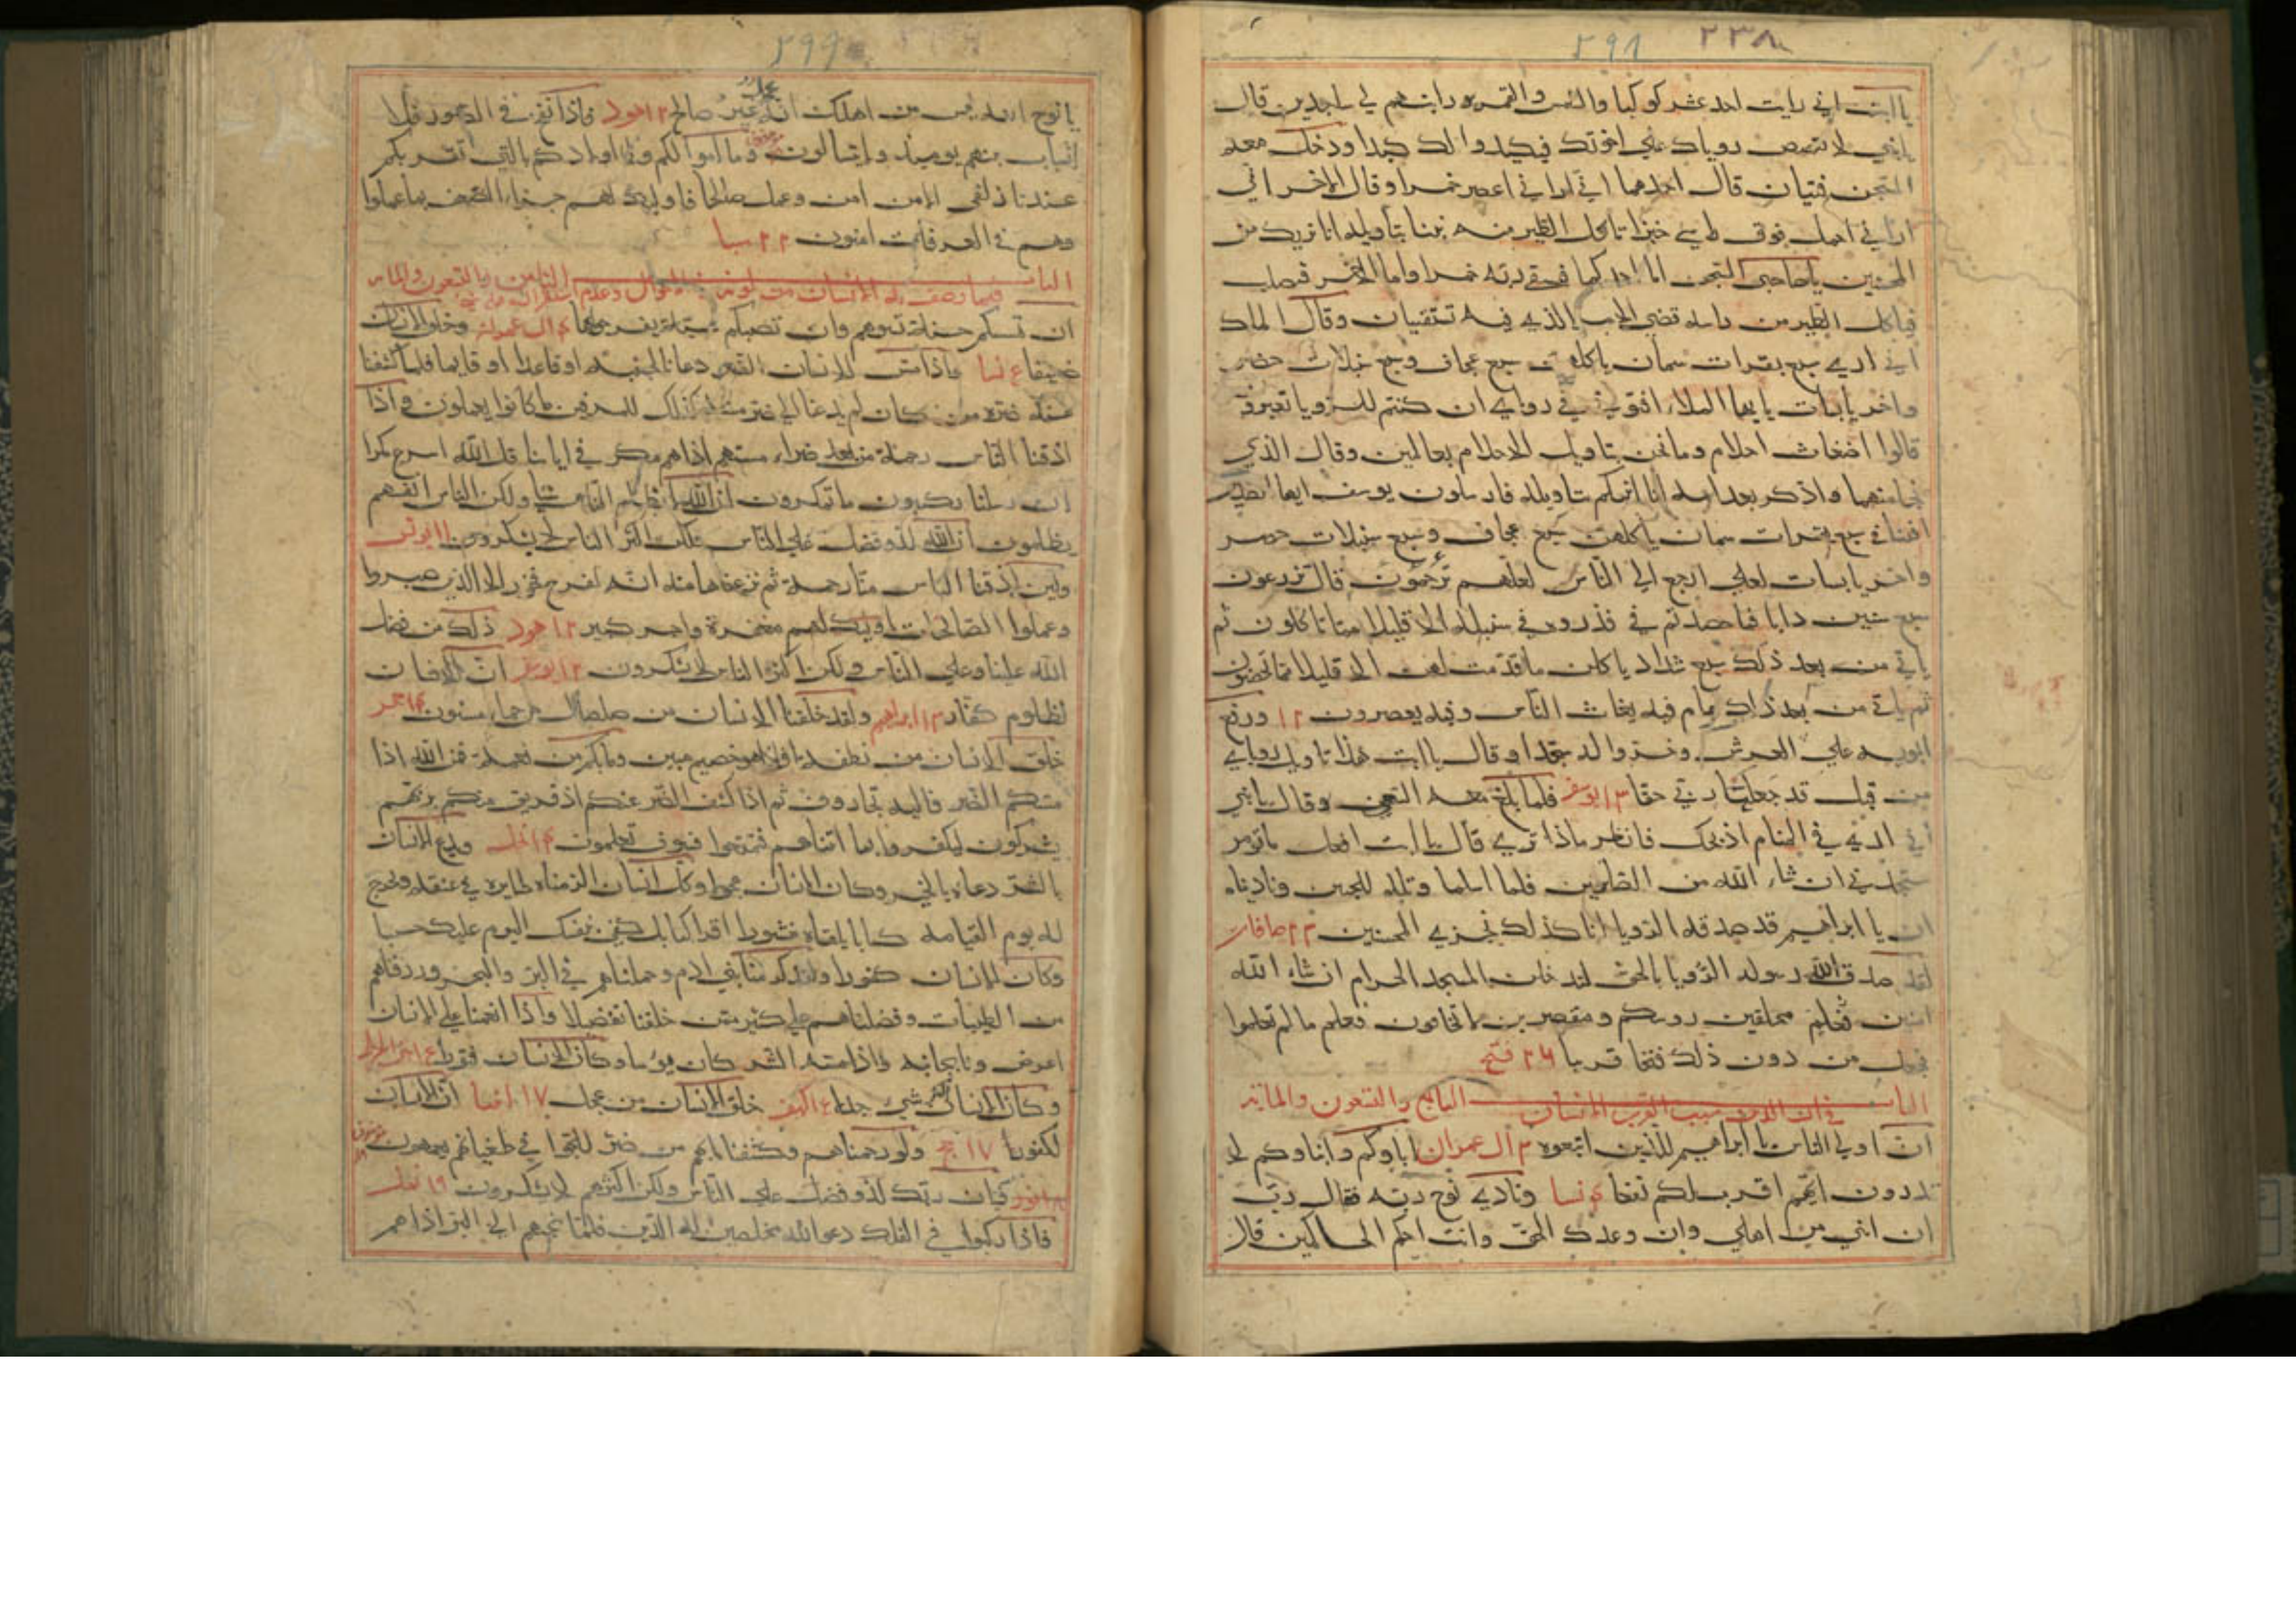 ٢٩٨ ٢٣٨
يا ابت اني رايت احد عشر كوكبا والشمس والقمر رايتهم لي ساجدين قال
يا بني لا تقصص روياك علي اخوتك فيكيدوا لك كيدا ودخل معه
السجن فتيان قال احدهما اني اراني اعصر خمرا وقال الاخر اني
اراني احمل فوق راسي خبزا تاكل الطير منه نبئنا بتاويله انا نريك من
المحسنين يا صاحبي السجن اما احدكما فيسقي ربه خمرا واما الاخر فيصلب
فياكل الطير من راسه قضي الامر الذي فيه تستفتيان وقال الملك
اني اري سبع بقرات سمان ياكلهن سبع عجاف وسبع سنبلات خضر
واخر يابسات يا ايها الملاء افتوني في روياي ان كنتم للرويا تعبرون
قالوا اضغاث احلام وما نحن بتاويل الاحلام بعالمين وقال الذي
نجا منهما واذكر بعد امه انا انبئكم بتاويله فارسلون يوسف ايها الصديق
افتنا في سبع بقرات سمان ياكلهن سبع عجاف وسبع سنبلات خضر
واخر يابسات لعلي ارجع الي الناس لعلهم قال تزرعون
سبع سنين دابا فما حصدتم في فذروه في سنبله الا قليلا مما تاكلون ثم
ياتي من بعد ذلك سبع شداد ياكلن ما قدمتم لهن الا قليلا مما تحصنون
ثم ياتي من بعد ذلك عام فيه يغاث الناس وفيه يعصرون ١٢ ورفع
ابويه علي العرش وخروا له سجدا وقال يا ابت هذا تاويل روياي
من قبل قد جعلها ربي حقا ١٣ يوسف فلما بلغ معه السعي وقال يا بني
اني اري في المنام اذبحك فانظر ماذا تري قال يا ابت افعل ما تومر
ستجدني ان شاء الله من الصابرين فلما اسلما وتله للجبين وناديناه
ان يا ابراهيم قد صدقت الرويا انا كذلك نجزي المحسنين ٢٣ صافات
لقد صدق الله رسوله الرويا بالحق لتدخلن المسجد الحرام ان شاء الله
امنين محلقين روسكم ومقصرين لا تخافون فعلم ما لم تعلموا
فجعل من دون ذلك فتحا قريبا ٢٦ فتح
الباب السابع والتسعون والمائة في ان الدين سبب القرب الانسان
ان اولي الناس با ابراهيم للذين اتبعوه ٣ ال عمران اباوكم وابناوكم لا
تدرون ايهم اقرب لكم نفعا ٤ نسا ونادي نوح ربه فقال رب
ان ابني من اهلي وان وعدك الحق وانت احكم الحاكمين قال
٢٩٩
يا نوح انه ليس من اهلك انه عمل غير صالح ١٢ هود فاذا نفخ في الصور فلا
انساب بينهم يومئذ ولا يتسالون وما اموالكم ولا اولادكم بالتي تقربكم
عندنا زلفي الا من امن وعمل صالحا فاوليك لهم جزاء الضعف بما عملوا
وهم في الغرفات امنون ٢٢ سبا
الباب الثامن والتسعون والمائه فيما وصف به الانسان من
ان تمسسكم حسنة تسوهم وان تصبكم سيئة يفرحوا بها ٤ ال عمران وخلق الانسان
ضعيفا ٤ نسا واذا مس الانسان الضر دعانا لجنبه او قاعدا او قايما فلما كشفنا
عنه ضره مر كان لم يدعنا الي ضر مسه كذلك للمسرفين ما كانوا يعملون واذا
اذقنا الناس رحمة من بعد ضراء مستهم اذا لهم مكر في اياتنا قل الله اسرع مكرا
ان رسلنا يكتبون ما تمكرون ان الله لا يظلم الناس شيا ولكن الناس انفسهم
يظلمون ان الله لذو فضل علي الناس ولكن اكثر الناس لا يشكرون ١١ يونس
ولئن اذقنا الناس منا رحمة ثم نزعناها منه انه لفرح فخور الا الذين صبروا
وعملوا الصالحات اوليك لهم مغفرة واجر كبير ١٢ هود ذلك من فضل
الله علينا وعلي الناس ولكن اكثر الناس لا يشكرون ١٢ يوسف ان الانسان
لظلوم كفار ١٣ ابراهيم ولقد خلقنا الانسان من صلصال من حماء مسنون ١٤ حجر
خلق الانسان من نطفه فاذا هو خصيم مبين وما بكم من نعمة فمن الله اذا
مسكم الضر فاليه تجارون ثم اذا كشف الضر عنكم اذ فريق منكم بربهم
يشركون ليكفروا بما اتيناهم فتمتعوا فسوف تعلمون ١٤ نحل ويدع الانسان
بالشر دعاه بالخير وكان الانسان عجولا وكل انسان الزمناه طايره في عنقه ونخرج
له يوم القيامه كتابا يلقاه منشورا اقرا كتابك كفي بنفسك اليوم عليك حسيبا
وكان الانسان كفورا ولقد كرمنا بني ادم وحملناهم في البر والبحر ورزقناهم
من الطيبات وفضلناهم علي كثير ممن خلقنا تفضيلا واذا انعمنا علي الانسان
اعرض ونا بجانبه واذا مسه الشر كان يوسا وكان الانسان قتورا
وكان الانسان اكثر شيء جدلا الكهف خلق الانسان من عجل ١٧ انبيا ان الانسان
لكفور ١٧ حج ولو رحمناهم وكشفنا ما بهم من ضر للجوا في طغيانهم يعمهون
وان ربك لذو فضل علي الناس ولكن اكثرهم لا يشكرون ١٩ نمل
فاذا ركبوا في الفلك دعوا الله مخلصين له الدين فلما نجيهم الي البر اذا هم